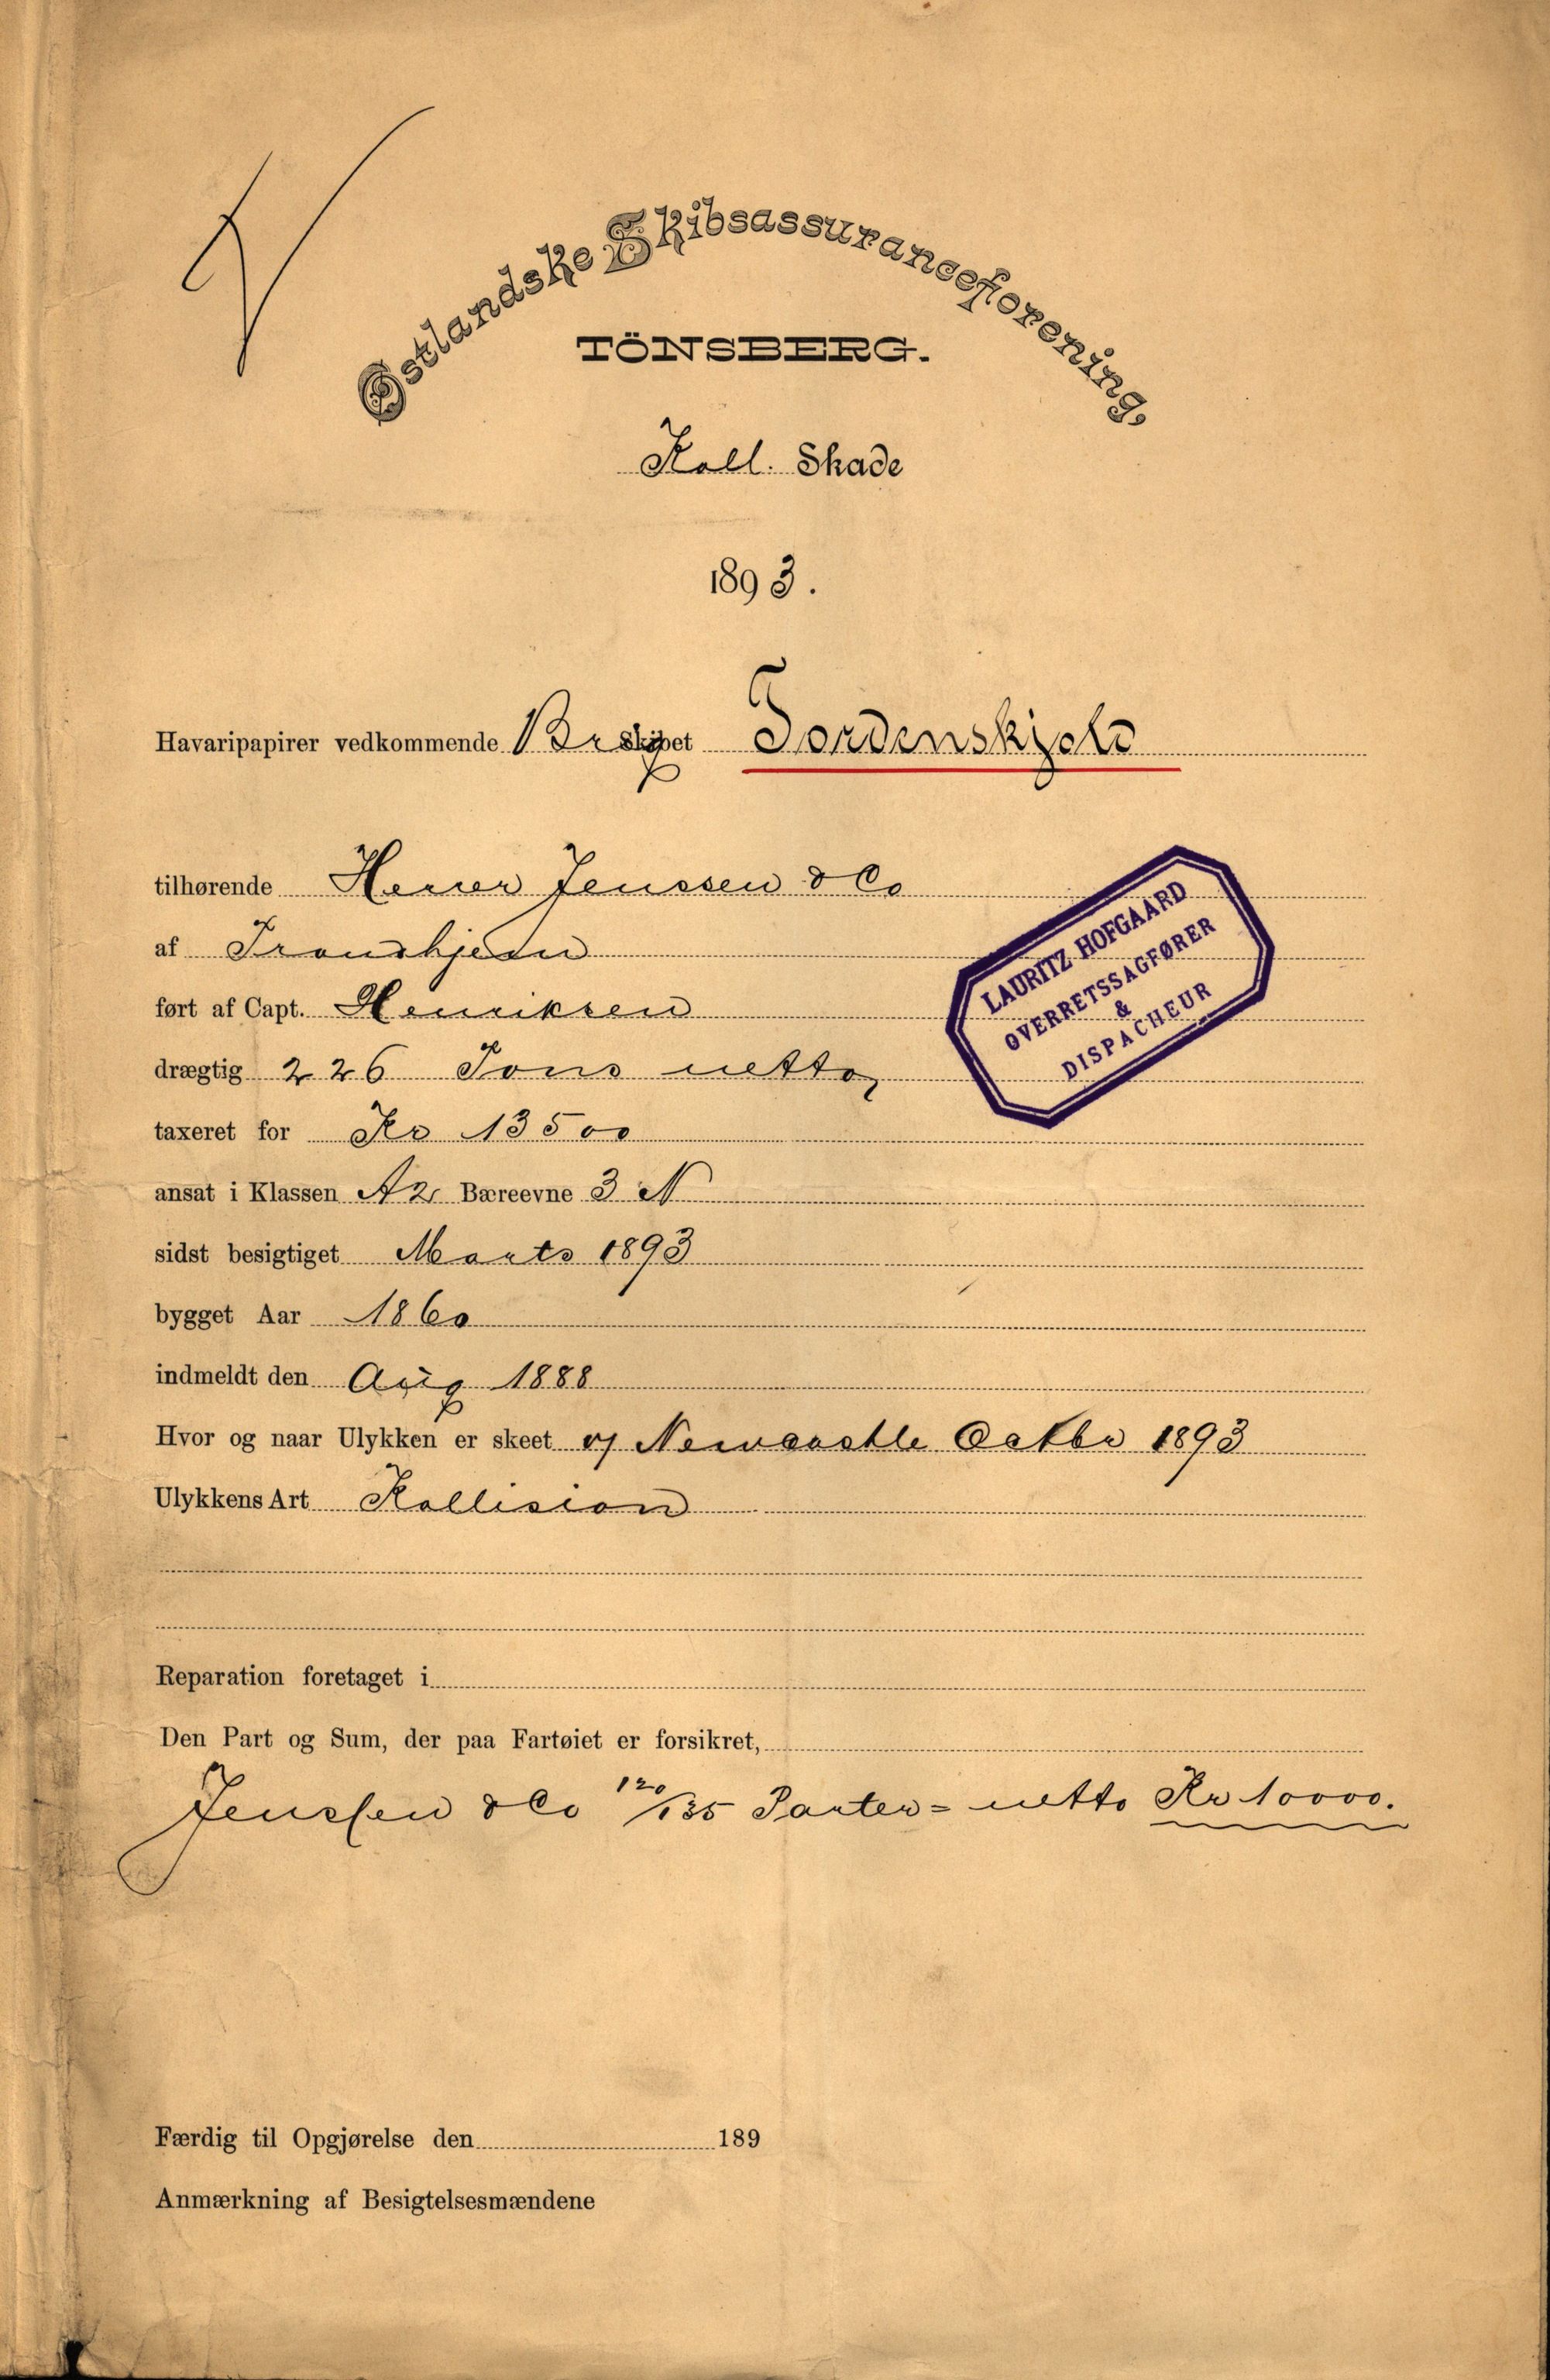 Østlandske Skibsassuranceforening,
TÖNSBERG.
Koll. Skade
1893.
Havaripapirer vedkommende Brig Skibet Tordenskjold
tilhørende Herrer Jenssen & Co
af Trondhjem
ført af Capt. Henriksen
drægtig 226 Tons netto
taxeret for Kr 13500
ansat i Klassen A2 Bæreevne 3 N
sidst besigtiget Marts 1893
bygget Aar 1860
indmeldt den Aug 1888
Hvor og naar Ulykken er skeet Newcastle Octbr 1893
Ulykkens Art Kollision
Reparation foretaget i
Den Part og Sum, der paa Fartøiet er forsikret,
Jenssen & Co 120/135 Parter = netto Kr 10000.
Færdig til Opgjørelse den 189
Anmærkning af Besigtelsesmændene
LAURITZ HOFGAARD
OVERRETSSAGFØRER
&
DISPACHEUR